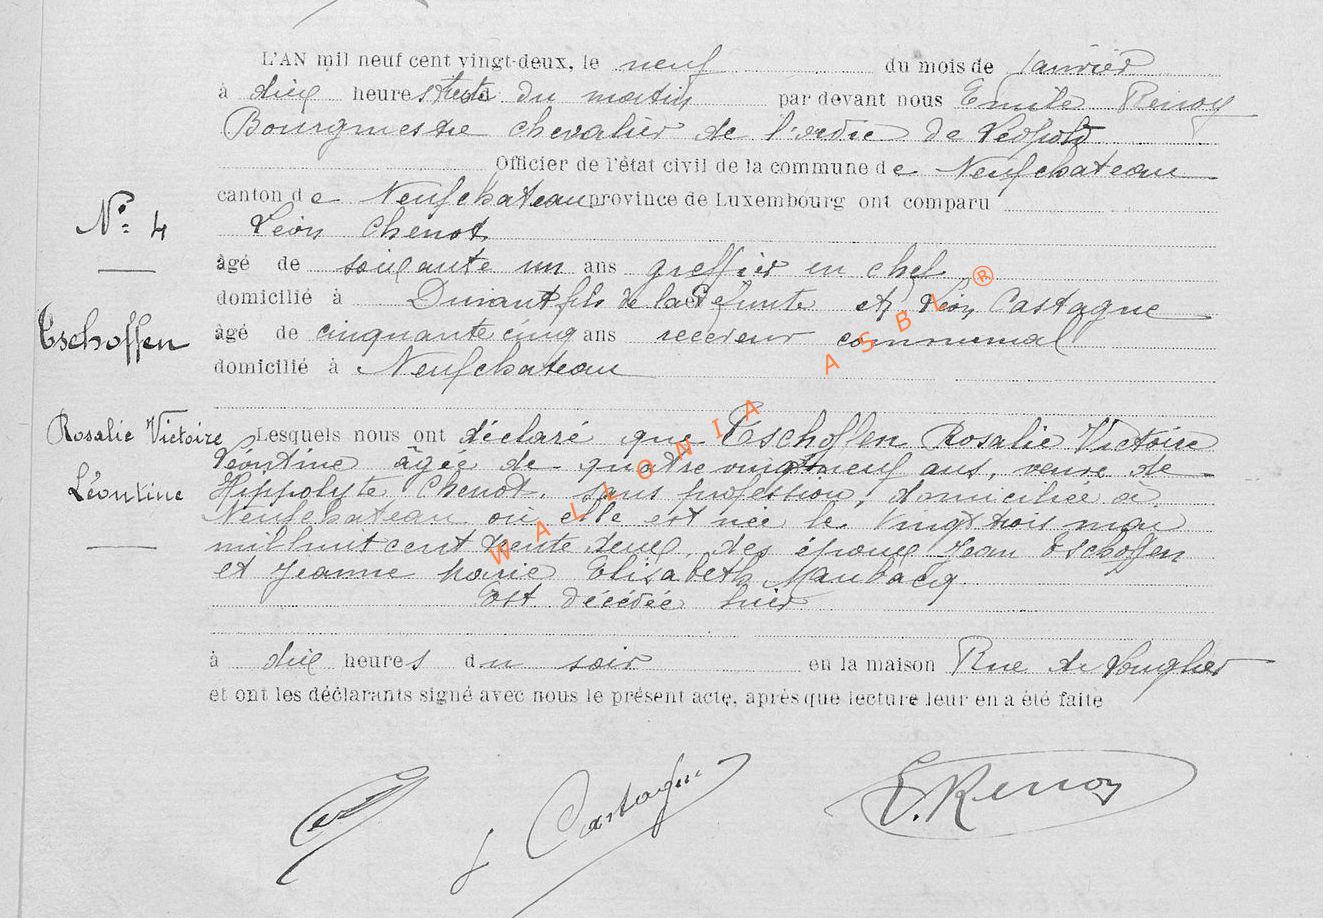 L'AN mil neuf cent vingt-deux, le neuf du mois de janvier
à dix heures du matin par devant nous Emile Renoy
Bourgmestre chevalier de l'ordre de Léopold
Officier de l'état civil de la commune de Neufchateau
canton de Neufchateau province de Luxembourg ont comparu
N° 4
Léon Chenot
âgé de soixante un ans greffier en chef
domicilié à Dinant fils de la défunte et Léon Castagne
Eschoffen
âgé de cinquante cinq ans receveur communal
domicilié à Neufchateau
Rosalie Victoire
Léontine
Lesquels nous ont déclaré que Eschoffen Rosalie Victoire
Léontine âgée de quatre vingt neuf ans, veuve de
Hippolyte Chenot, sans profession, domiciliée à
Neufchateau où elle est née le vingt trois mai
mil huit cent trente deux, des époux Jean Eschoffen
et Jeanne Marie Elisabeth Maubacq
Est décédée hier
à dix heures du soir en la maison Rue de
et ont les déclarants signé avec nous le présent acte, après que lecture leur en a été faite
L Castagne
E. Renoy
WALLONIA ASBL ®